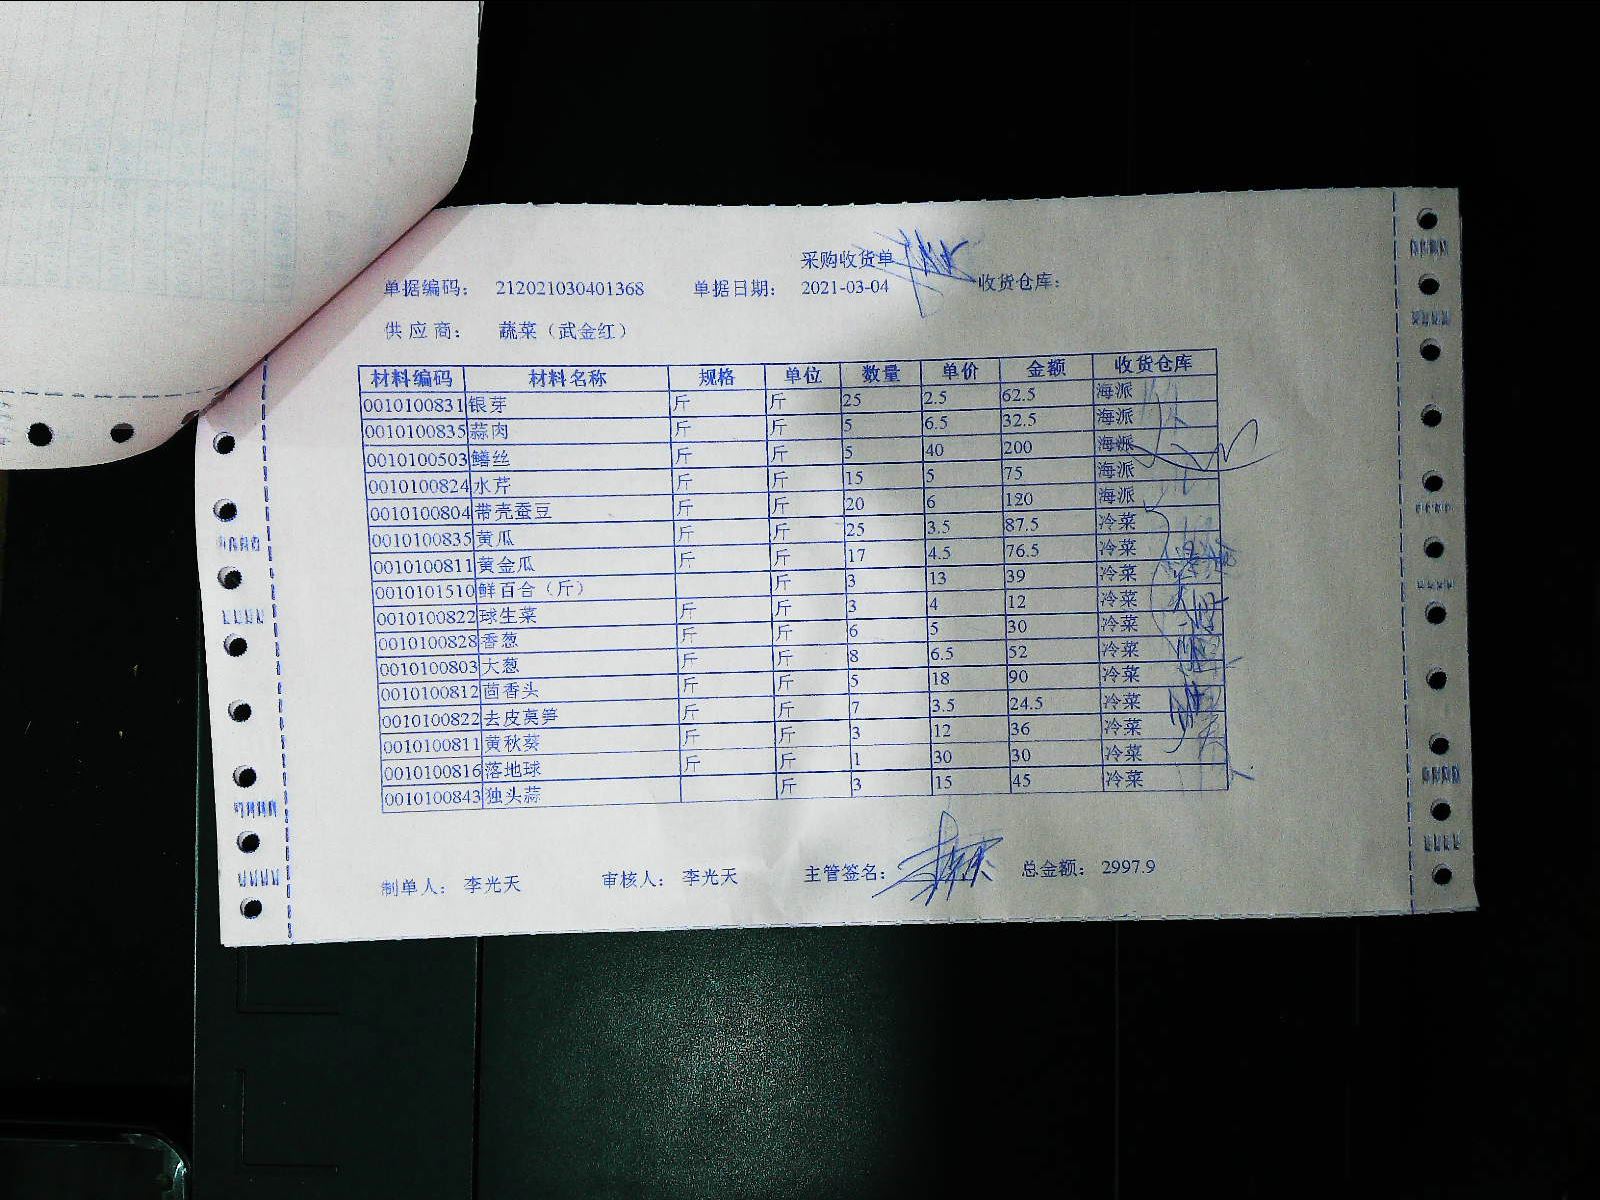 采购收货单
单据编码： 212021030401368 单据日期： 2021-03-04 收货仓库：
供应商： 蔬菜（武金红）
材料编码 材料名称 规格 单位 数量 单价 金额 收货仓库
0010100831 银芽 斤 斤 25 2.5 62.5 海派
0010100835 蒜肉 斤 斤 5 6.5 32.5 海派
0010100503 鳝丝 斤 斤 5 40 200 海派
0010100824 水芹 斤 斤 15 5 75 海派
0010100804 带壳蚕豆 斤 斤 20 6 120 海派
0010100835 黄瓜 斤 斤 25 3.5 87.5 冷菜
0010100811 黄金瓜 斤 斤 17 4.5 76.5 冷菜
0010101510 鲜百合（斤） 斤 3 13 39 冷菜
0010100822 球生菜 斤 斤 3 4 12 冷菜
0010100828 香葱 斤 斤 6 5 30 冷菜
0010100803 大葱 斤 斤 8 6.5 52 冷菜
0010100812 茴香头 斤 斤 5 18 90 冷菜
0010100822 去皮莴笋 斤 斤 7 3.5 24.5 冷菜
0010100811 黄秋葵 斤 斤 3 12 36 冷菜
0010100816 落地球 斤 斤 1 30 30 冷菜
0010100843 独头蒜 斤 3 15 45 冷菜
制单人： 李光天 审核人： 李光天 主管签名： 总金额： 2997.9